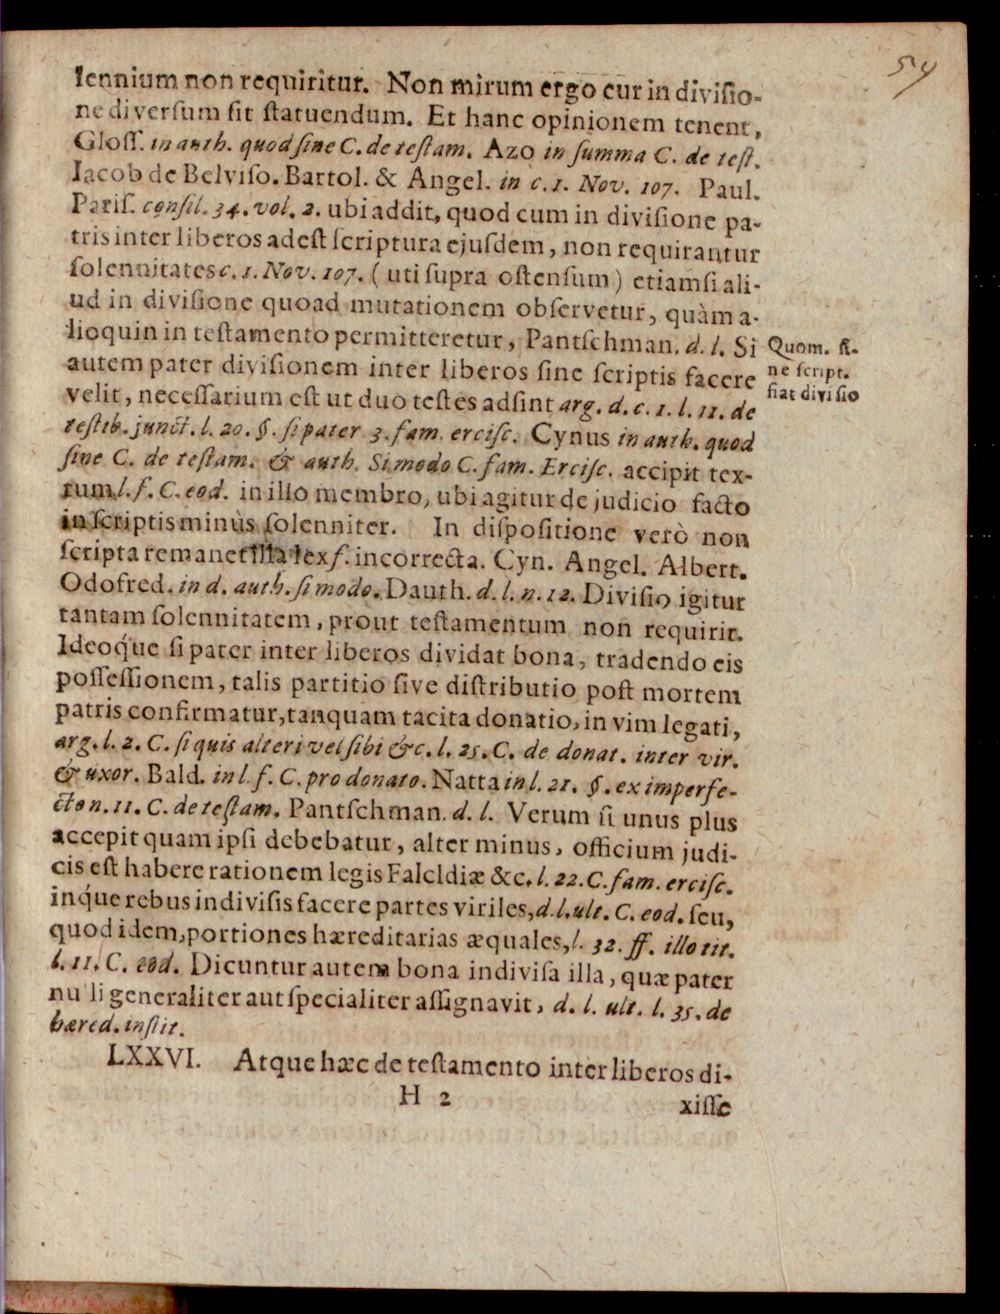 54
lennium non requiritur. Non mirum ergo cur in divisio-
ne diversum sit statuendum. Et hanc opinionem tenent,
Gloss. in auth. quod sine C. de testam. Azo in summa C. de test.
Iacob de Belviso. Bartol. & Angel. in c. 1. Nov. 107. Paul.
Paris. consil. 34. vol. 2. ubi addit, quod cum in divisione pa-
tris inter liberos adest scriptura ejusdem, non requirantur
solennitates c. 1. Nov. 107. (uti supra ostensum) etiamsi ali-
ud in divisione quoad mutationem observetur, quàm a-
lioquin in testamento permitteretur, Pantschman. d. l. Si
autem pater divisionem inter liberos sine scriptis facere
velit, necessarium est ut duo testes adsint arg. d. c. 1. l. 11. de
testib. junct. l. 20. §. si pater 3. fam. ercisc. Cynus in auth. quod
sine C. de testam. & auth. Si modo C. fam. Ercisc. accipit tex-
tum l. f. C. eod. in illo membro, ubi agitur de judicio facto
in scriptis minùs solenniter. In dispositione verò non
scripta remanet illa lex f. incorrecta. Cyn. Angel. Albert.
Odofred. in d. auth. si modo. Dauth. d. l. n. 12. Divisio igitur
tantam solennitatem, prout testamentum non requirit.
Ideoq́ue si pater inter liberos dividat bona, tradendo eis
possessionem, talis partitio sive distributio post mortem
patris confirmatur, tanquam tacita donatio, in vim legati,
arg. l. 2. C. si quis alteri vel sibi &c. l. 25. C. de donat. inter vir.
& uxor. Bald. in l. f. C. pro donato. Natta in l. 21. §. ex imperfe-
cto n. 11. C. de testam. Pantschman. d. l. Verum si unus plus
accepit quam ipsi debebatur, alter minus, officium judi-
cis est habere rationem legis Falcidiæ &c. l. 22. C. fam. ercisc.
inq́ue rebus indivisis facere partes viriles, d. l. ult. C. eod. seu,
quod idem, portiones hæreditarias æquales, l. 32. ff. illo tit.
l. 11. C. eod. Dicuntur autem bona indivisa illa, quæ pater
nulli generaliter aut specialiter assignavit, d. l. ult. l. 35. de
hæred. instit.
LXXVI. Atque hæc de testamento inter liberos di-
H 2 xisse
Quom. si-
ne script.
fiat divisio